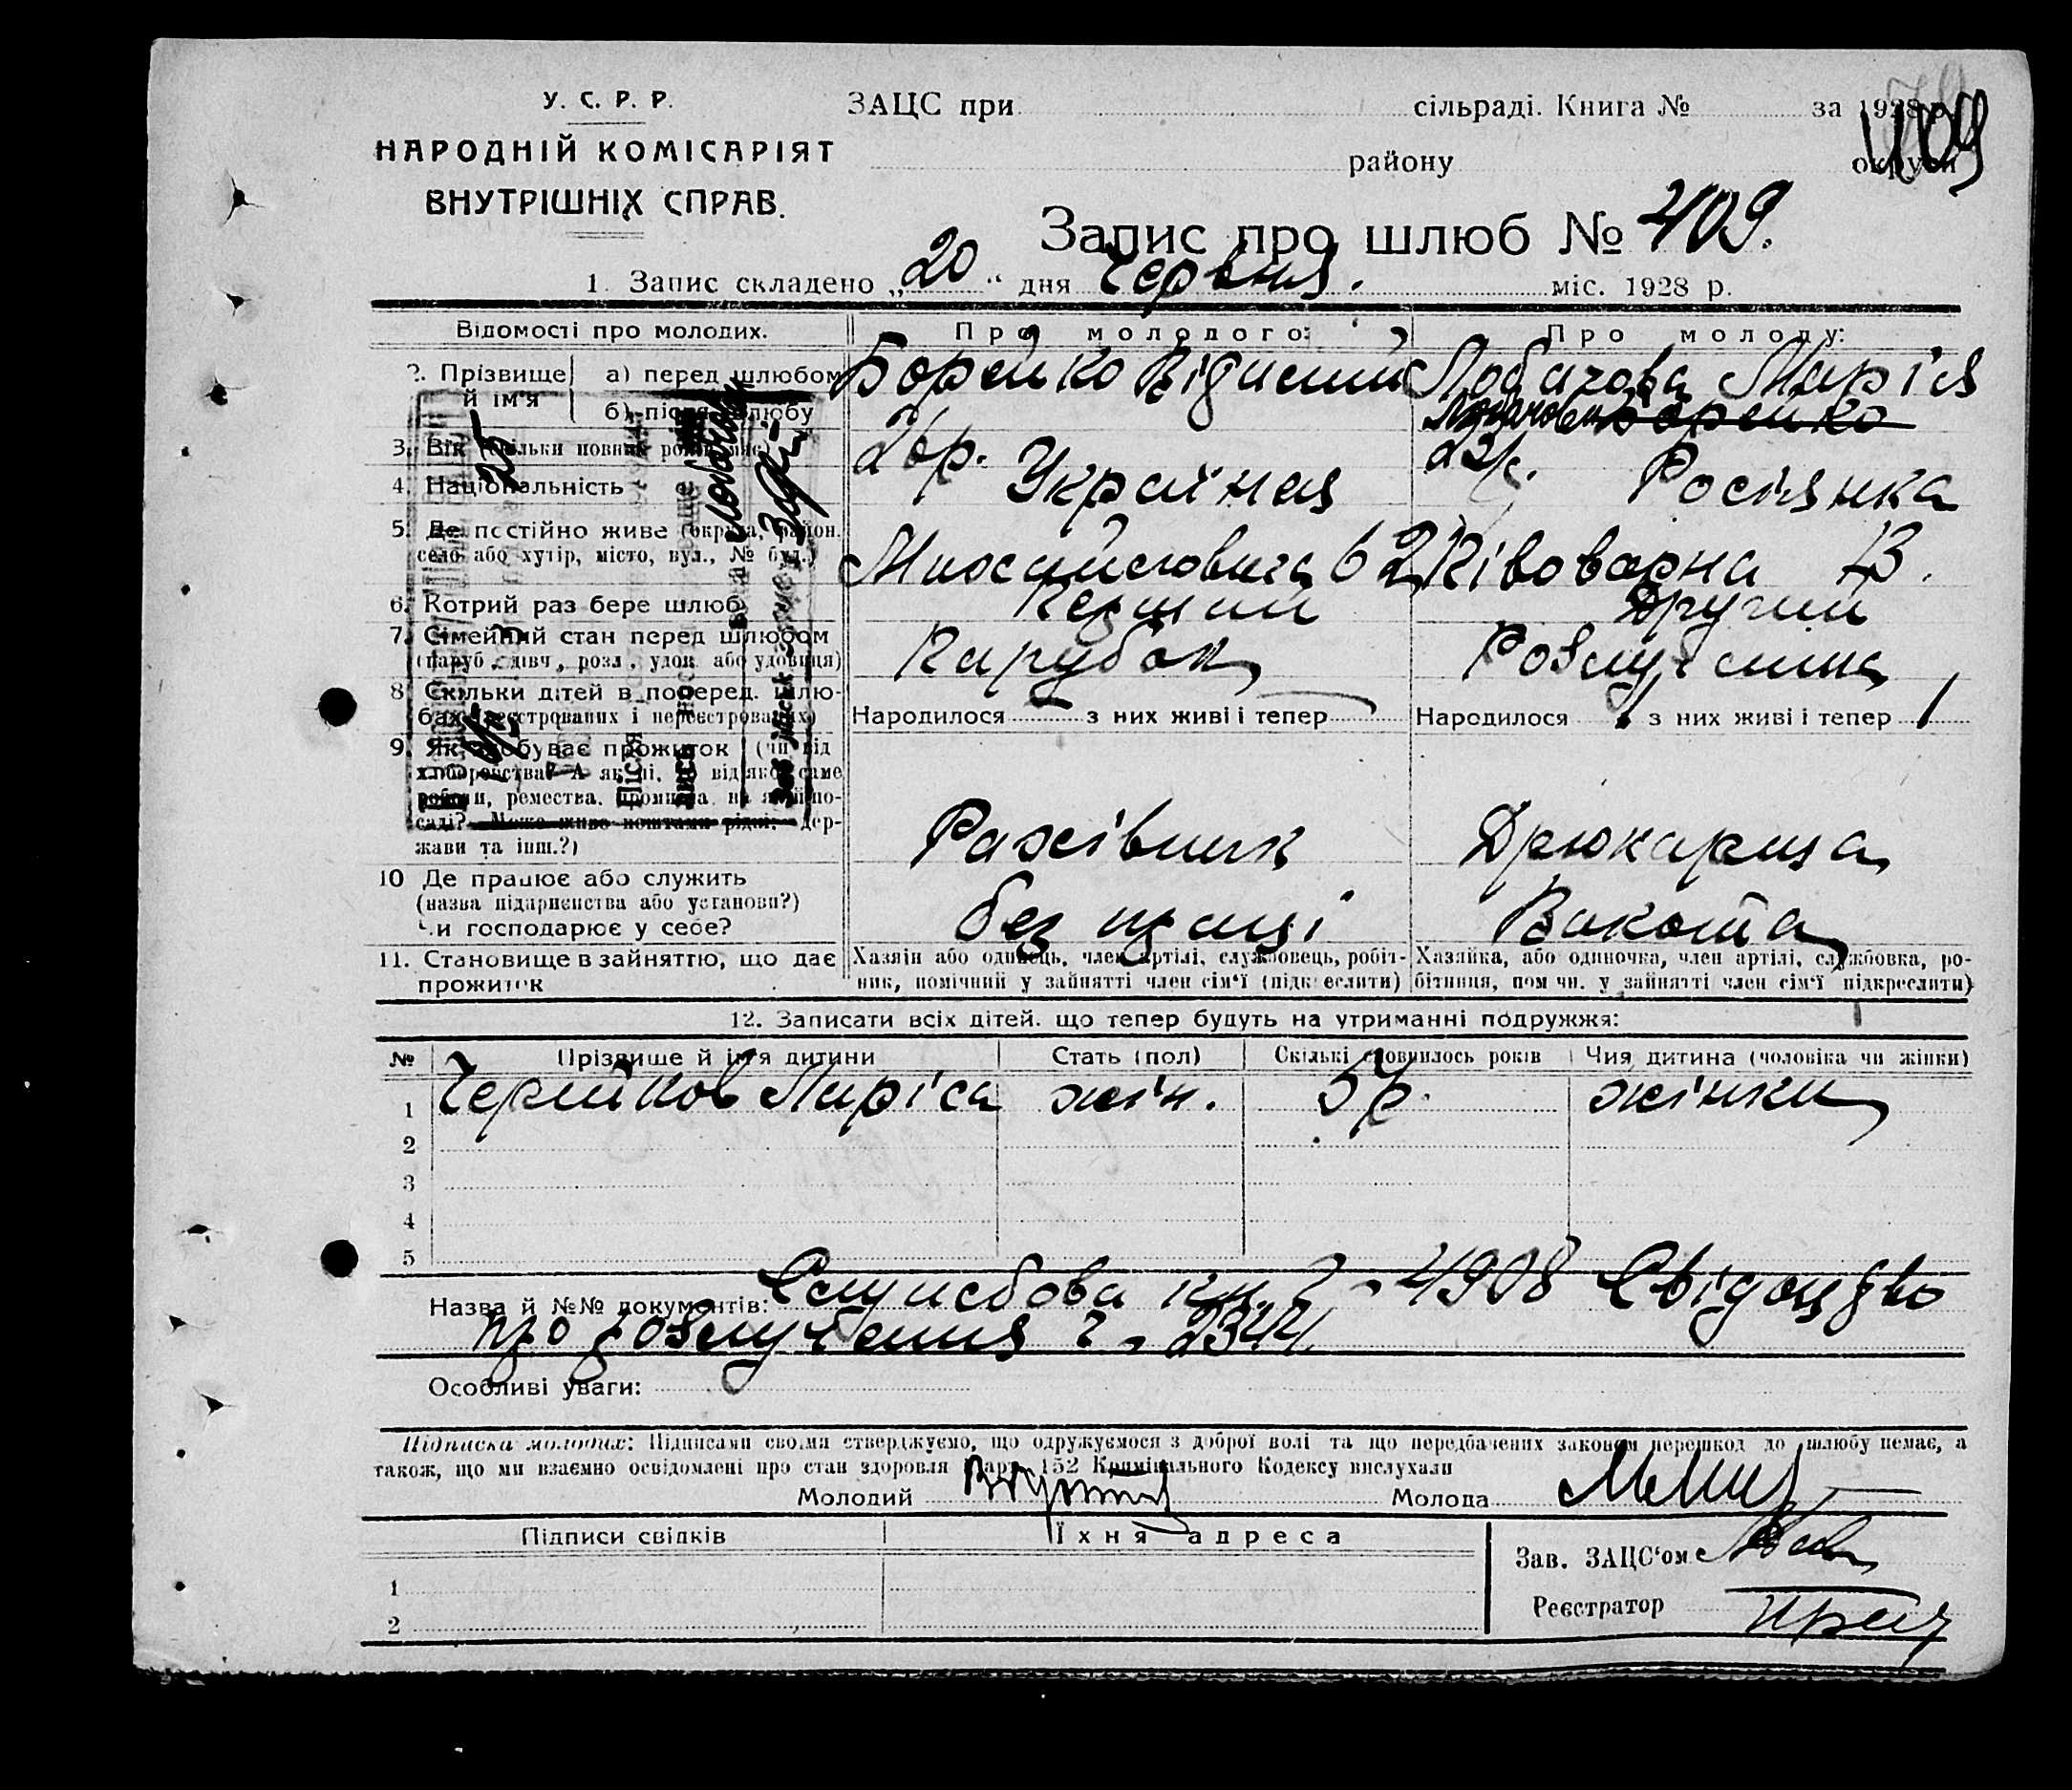 У. С. Р. Р.
НАРОДНІЙ КОМІСАРІЯТ
ВНУТРІШНІХ СПРАВ.
ЗАЦС при сільраді. Книга № за 1928 р.
району округи
409
Запис про шлюб № 409.
1. Запис складено „20“ дня Червня. міс. 1928 р.
Відомості про молодих. Про молодого: Про молоду:
2. Прізвище й ім'я а) перед шлюбом Борейко Лобачова Марія
б) після шлюбу Борейко
3. Вік (скільки повних років має) 26 р. 23 р.
4. Національність Україн Росіянка
5. Де постійно живе (округа, район. село або хутір, місто, вул., № буд.) 62 Півоварна 13.
6. Котрий раз бере шлюб Перший Другий
7. Сімейний стан перед шлюбом Парубок Розлучена
(паруб., дівч., розл., удов. або удовиця)
8. Скільки дітей в поперед. шлюбах (реєстрованих і нереєстрованих) Народилося з них живі і тепер Народилося 1 з них живі і тепер 1
9. Як здобуває прожиток (чи від хліборобства? А як ні, то від якої саме роботи, ремества, промисла, на якій посаді? Може живе коштами рідні, держави та інш.?) Рахівник Друкарица
10. Де працює або служить
(назва підприємства або установи?)
Чи господарює у себе? без праці
11. Становище в зайняттю, що дає прожиток Хазяїн або одинець, член артілі, службовець, робітник, помічний у зайнятті член сім'ї (підкреслити) Хазяйка, або одиночка, член артілі, службовка, робітниця, помічн. у зайнятті член сім'ї підкреслити)
12. Записати всіх дітей, що тепер будуть на утриманні подружжя:
№ Прізвище й ім'я дитини Стать (пол) Скількі сповнилось років Чия дитина (чоловіка чи жінки)
1 жін. 5 р. жінки
2
3
4
5
Назва й №№ документів: Службова кн. 4908 Свідоцдво
про розлучення ч. 2344
Особливі уваги:
Підписка молодих: Підписами своїми стверджуємо, що одружуємося з доброї волі та що передбачених законом перешкод до шлюбу немає, а
також, що ми взаємно освідомлені про стан здоровля і арт. 152 Кримінального Кодексу вислухали
Молодий Молода
Підписи свідків Їхня адреса
Зав. ЗАЦС'ом
1
Реєстратор
2